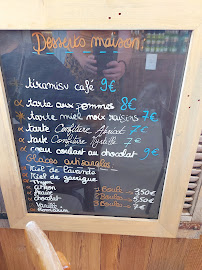 Desserts maison
tiramisu café 9€
tarte aux pommes 8€
tarte miel noix raisins 7€
tarte Confiture Abricot 7€
tarte Confiture Myrtille 7€
cœur coulant au chocolat 9€
Glaces artisanales
Miel de lavande
Miel de garrigue
Thym
citron
fraise 1 Boule 3,50€
chocolat 2 Boules 5,50€
Vanille 3 Boules 7€